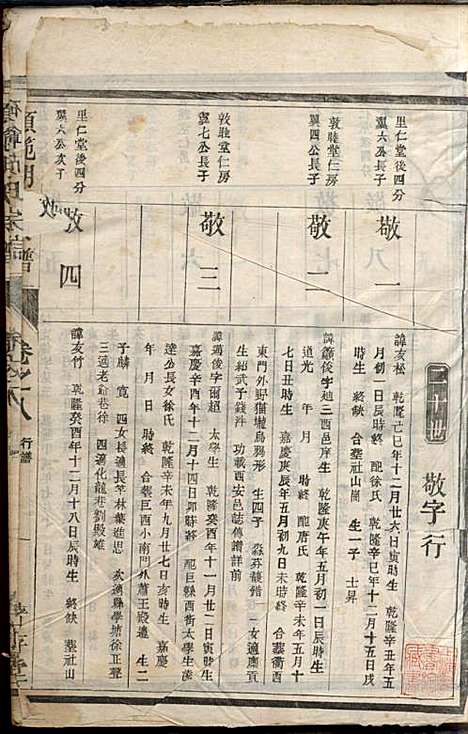 二十世
敬字行
里仁堂後四分
翼六公長子
敬一
諱友松 乾隆己巳年十二月廿六日寅時生 乾隆辛丑年五
月初一日辰時終 配徐氏 乾隆辛巳年十二月十五日戌
時生 終缺 合塟社山崗 生一子 士昇
敦睦堂仁房
翼四公長子
敬二
諱簫後字趙三酉邑庠生 乾隆庚午年五月初一日辰時生
道光 年 月 日 時終 配唐氏 乾隆辛未年五月十
七日丑時生 嘉慶庚辰年五月初九日未時終 合塟衢西
東門外野猫墩烏鴉形 生四子 淼芬馥鐠 一女適廪貢
生紹武予錢泮 功載西安邑誌傳譜詳前
敦睦堂仁房
翼七公長子
敬三
諱適後字爾超 太學生 乾隆癸酉年十一月廿二日寅時生
嘉慶辛酉年十二月十四日卯時終 配巨縣西街太學生凌
達公長女徐氏 乾隆辛未年九月廿七日亥時生 嘉慶
年 月 日 時終 合塟巨西小南門外蕭王殿邉 生二
子麟 寬 四女長適長竿林葉進思 次適縣學塘徐正聲
三適老爺巷徐 四適化龍巷劉殿雄
里仁堂後四分
翼六公次子
敬四
諱友竹 乾隆癸酉年十二月十八日辰時生 終缺 塟社山
譜
卷之八
行譜